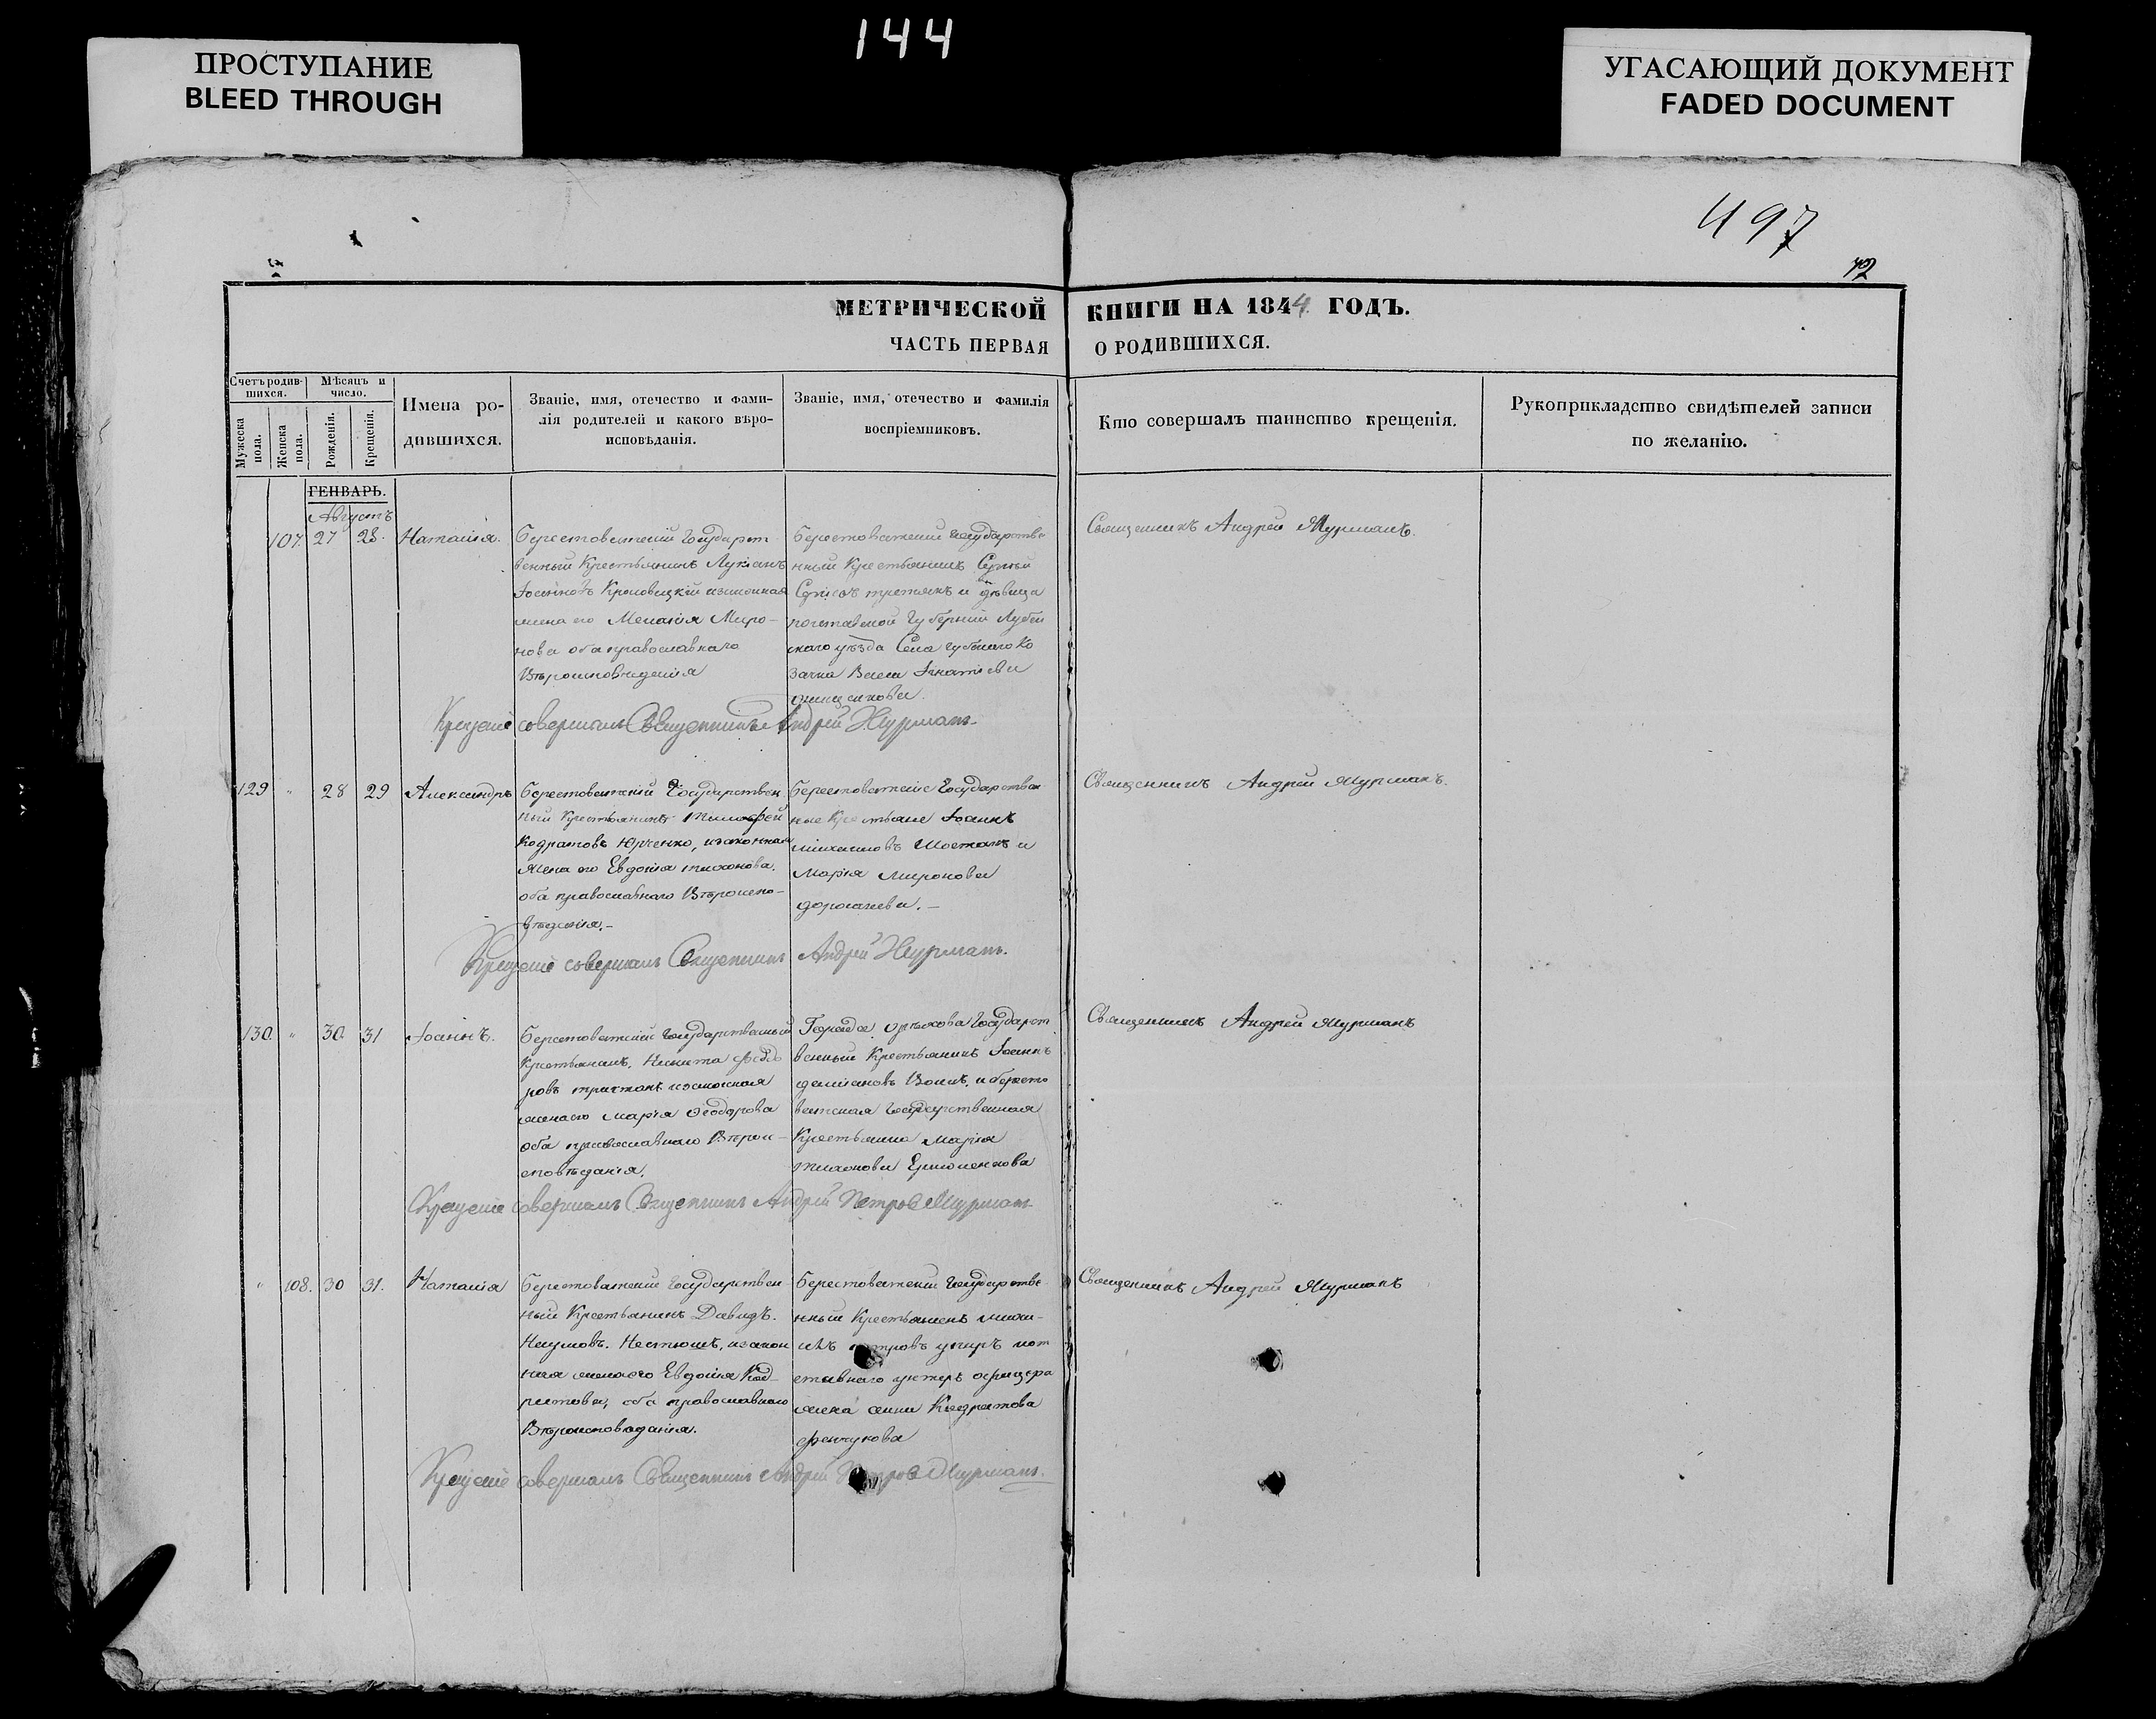 144
ПРОСТУПАНИЕ
BLEED THROUGH
УГАСАЮЩИЙ ДОКУМЕНТ
FADED DOCUMENT
497
МЕТРИЧЕСКОЙ КНИГИ НА 1844 ГОДЪ.
ЧАСТЬ ПЕРВАЯ О РОДИВШИХСЯ.
Счетъ родив-
шихся.
Мѣсяцъ и
число.
Мужеска
пола.
Женска
пола.
Рожденія.
Крещенія.
Имена ро-
дившихся.
Званіе, имя, отечество и фами-
лія родителей и какого вѣро-
исповѣданія.
Званіе, имя, отечество и фамилія
воспріемниковъ.
Кто совершалъ таинство крещенія.
Рукоприкладство свидѣтелей записи
по желанію.
ГЕНВАРЬ.
Августъ
107. 27 28. Наталія.
Берестоватскій Государст
венный Крестьянинъ Лукіанъ
законная
жена его Меланія Миро-
нова оба православнаго
Вѣроисповѣданія
Берестоватскій Государстве
нный Крестьянинъ Сергій
и дѣвица
Губерніи Лубен
скаго уѣзда Села Ко
зачка
Священникъ Андрей Журманъ.
Крещеніе совершалъ Священникъ Андрей Журманъ.
129 " 28 29 Александръ
Берестоватскій Государствен
ный Крестьянинъ Тимофей
Кодратовъ Юрченко, изаконная
жена его Евдокія Тихонова.
оба православнаго Вѣроиспо-
вѣданія.-
Берестоватскіе Государствен
ные Крестьяне Іоаннъ
Михаиловъ и
Марія Миронова
Священникъ Андрей Журманъ.
Крещеніе совершалъ Священникъ Андрей Журманъ.
130. " 30. 31 Іоаннъ.
Берестоватскій Государственный
Крестьянинъ, Никита Федо
ровъ изаконная
жена его Марія Феодорова
оба православнаго Вѣрои-
сповѣданія.
Города Орѣхова Государст
венный Крестьянинъ Іоаннъ
и Бересто
ватская Государственная
Крестьянка Марія
Тихонова
Священникъ Андрей Журманъ
Крещеніе совершалъ Священникъ Андрей Петровъ Журманъ
" 108. 30 31. Наталія
Берестоватскій Государствен-
ный Крестьянинъ Давидъ.
Наумовъ. изакон
ная жена его Евдокія Код-
ратова, оба православнаго
Вѣроисповѣданія.
Берестоватскій Государстве-
нный Крестьянинъ Миха-
илъ Петровъ
ставнаго унтеръ офицера
жена Анна Кодратова
Священникъ Андрей Журманъ
Крещеніе совершалъ Священникъ Андрей Петровъ Журманъ.